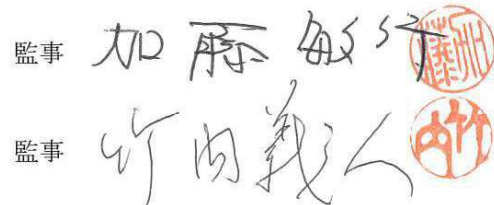 監事 加藤敏行 加藤
監事 竹内義人 竹内